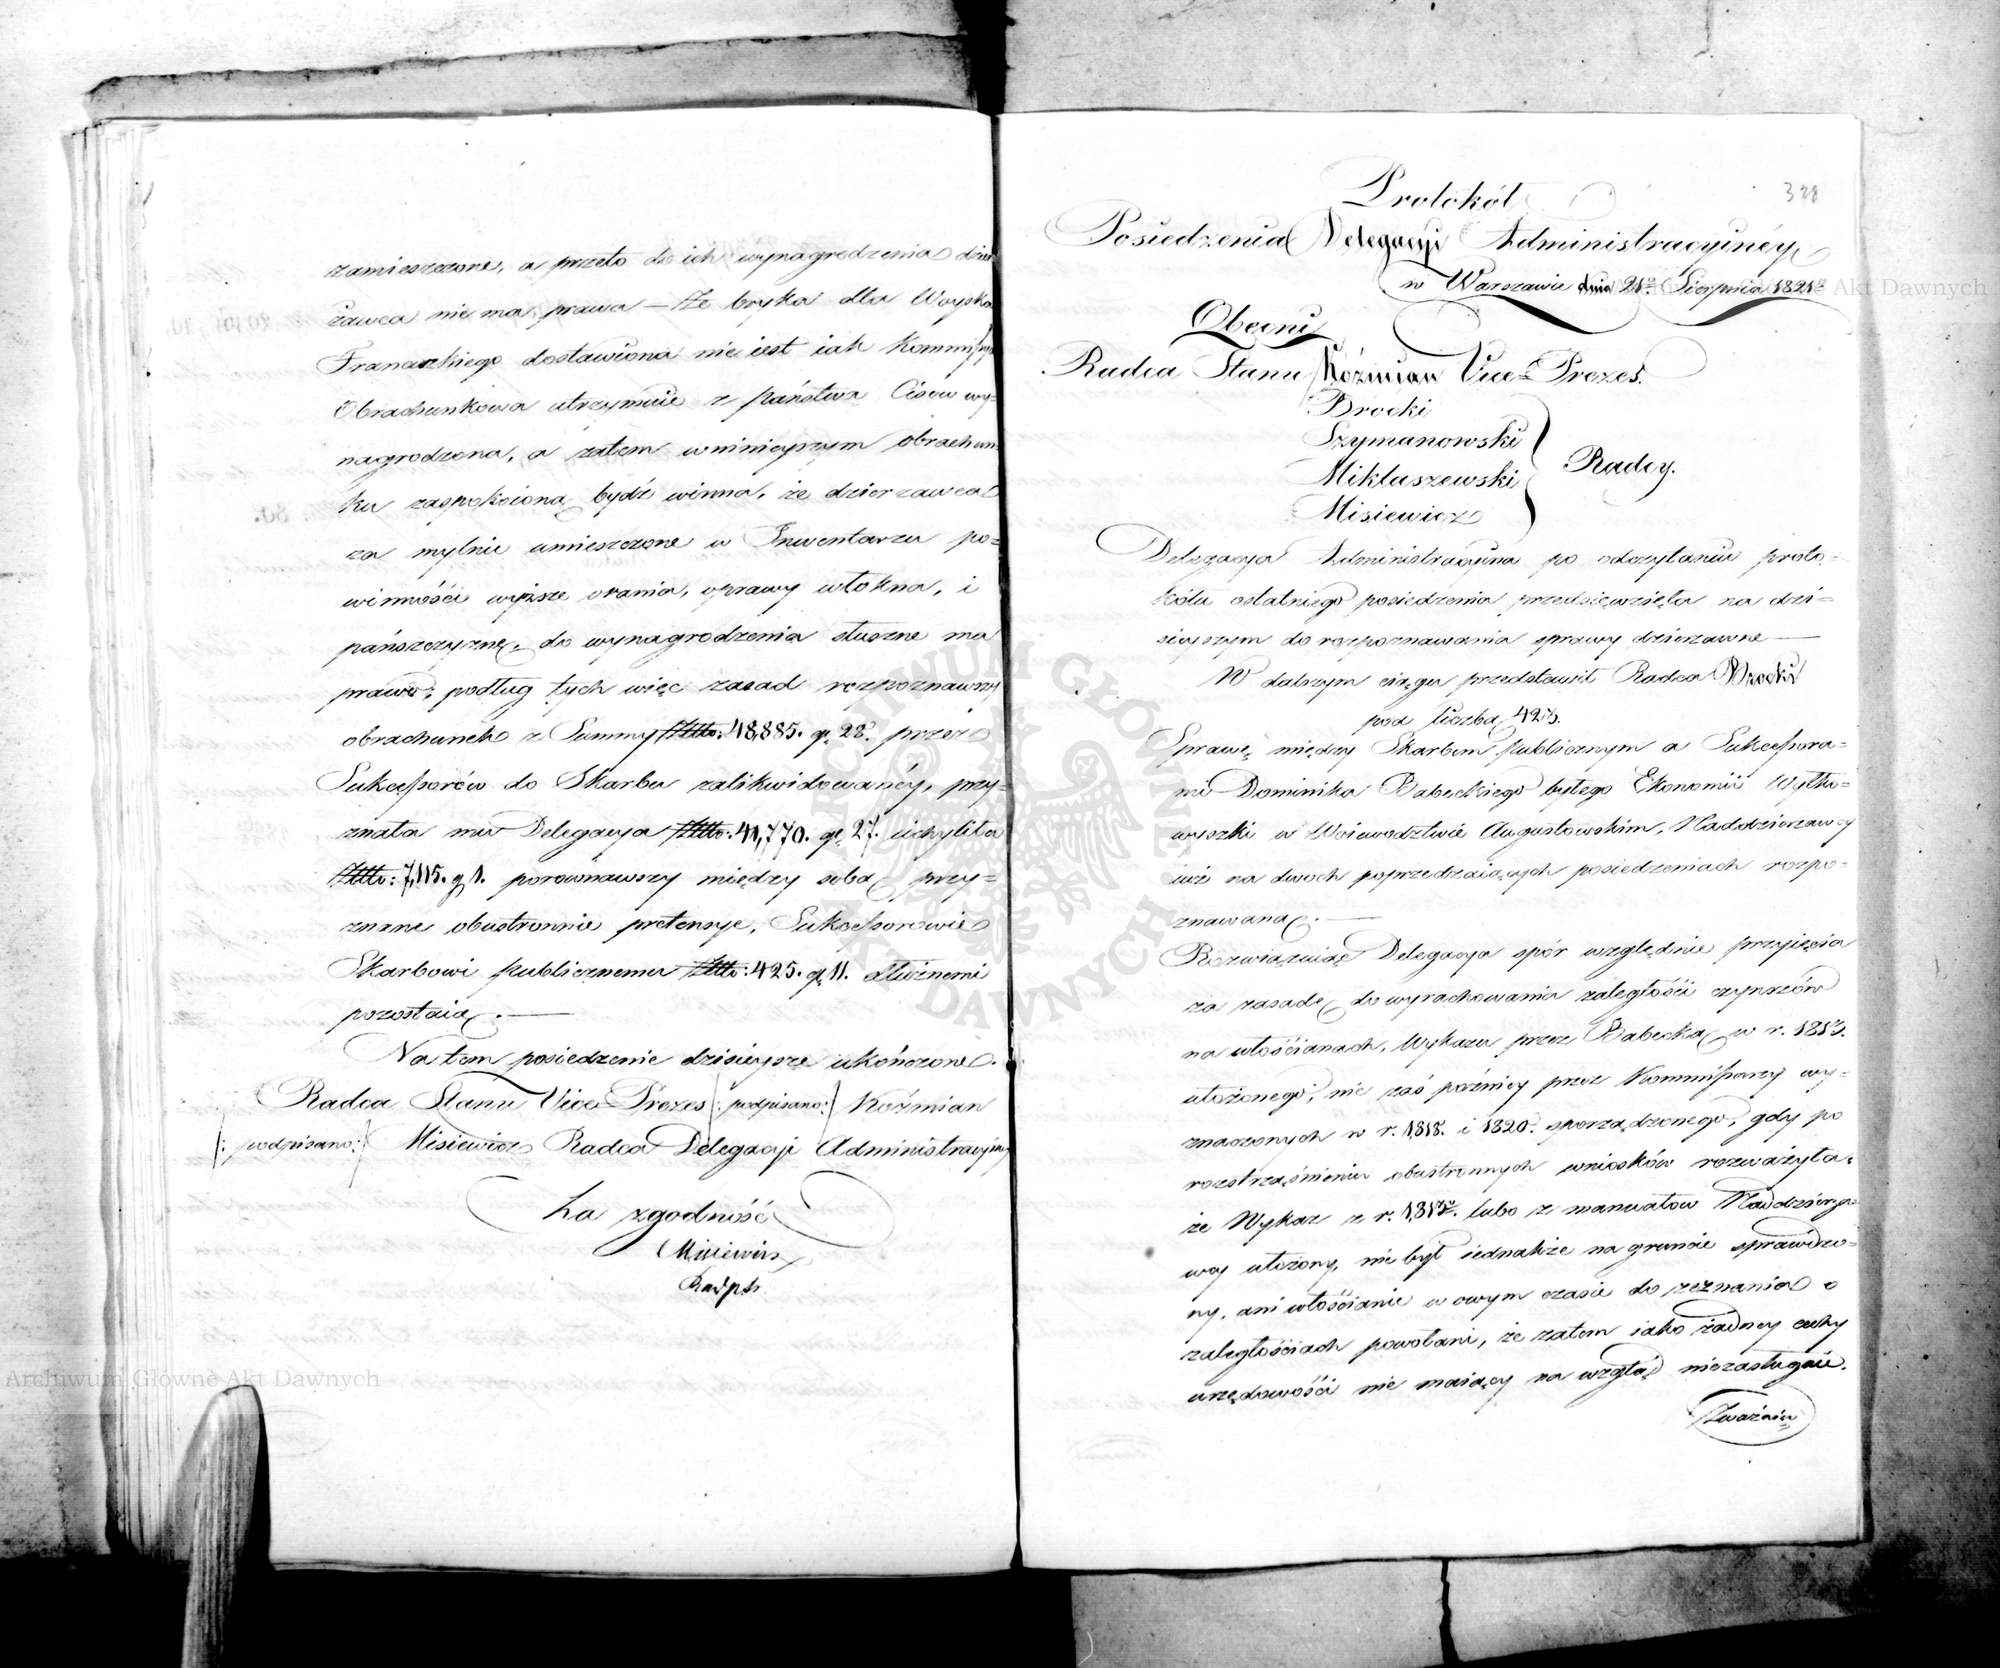 zamieszczone, a przeto do ich wynagrodzenia dzier
żawca nie ma prawa — Że bryka dla Woyska
Francuzkiego dostawiona nie iest iak Kommissya
Obrachunkowa utrzymuie z państwa Cisów wy=
nagrodzona, a zatem w ninieyszym obrachun=
ku zaspokoioną bydź winna, że dzierzawca
za mylnie umieszczone w Inwentarzu po=
winności wyższe orania, oprawy włokna, i
pańszczyznę, do wynagrodzenia słuszne ma
prawo; podług tych więc zasad rozpoznawszy
obrachunek z Summy 48,885. gr. 28. przez
Sukcessorów do Skarbu zalikwidowanéy, przy=
znała mu Delegacya 41,770. gr. 27. uchyliła
7,115. gr 1. porownawszy między sobą przy=
znane obustronnie pretensye, Sukcessorowie
Skarbowi publicznemu 425. gr. 11. dłużnemi
pozostaią. —
Na tem posiedzenie dzisieysze ukończone.
Radca Stanu Vice=Prezes /: podpisano:/ Koźmian
/: podpisano:/ Misiewicz Radca Delegacyi Administracyiney
Za zgodność
Misiewicz
328
Protokół
Posiedzenia Delegacyi Administracyinéy
w Warszawie dnia 21º Sierpnia 1821º
Obecni
Radca Stanu Koźmian Vice=Prezes.
Brocki
Szymanowski
Miklaszewski
Misiewicz
Radcy.
Delegacya Administracyina po odczytaniu proto=
kółu ostatniego posiedzenia przedsięwzięła na dzi=
sieyszym do rozpoznawania sprawy dzierzawne —
W dalszym ciągu przedstawił Radca Brocki
pod liczbą 427.
Sprawę między Skarbem publicznym a Sukcessora=
mi Dominika Babeckiego byłego Ekonomii Wyłko=
wyszki w Woiewodztwie Augustowskim, Naddzierzawcy
iuż na dwoch poprzedzaiących posiedzeniach rozpo=
znawaną. —
Rozwiązuiąc Delegacya spór względnie przyięcia
za zasadę do wyrachowania zaległości czynszów
na włościanach, Wykazu przez Babecką w r. 1813.
ułożonego; nie zaś poźniey przez Kommissarzy wy=
znaczonych w r. 1818. i 1820. sporządzonego, gdy po
roztrząśnieniu obustronnych wniosków rozważyła,
że Wykaz z r. 1813. lubo z manuałow Naddzierża=
wcy ułożony, nie był iednakże na gruncie sprawdzo=
ny, ani włościanie w owym czasie do zeznania o
zaległościach powołani, że zatem iako żadney cechy
urzędowości nie maiący na wzgląd niezasługuie.
Zważaiąc
Archiwum Główne Akt Dawnych
ARCHIWUM GŁÓWNE AKT DAWNYCH
Archiwum Główne Akt Dawnych